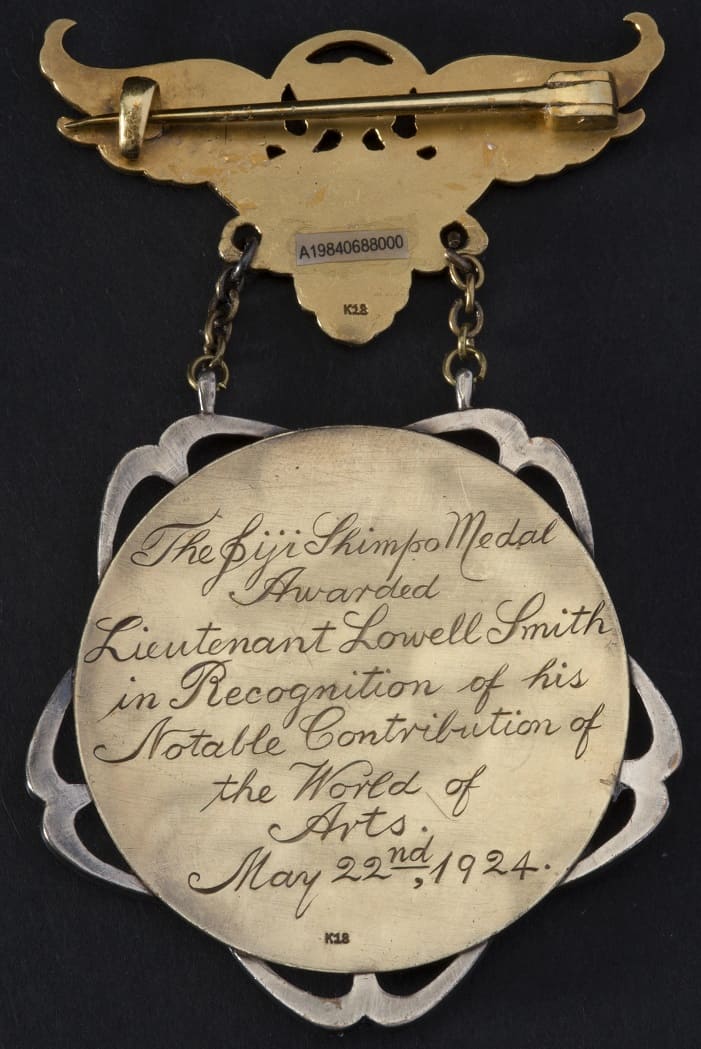 A19840688000
K18
The Jiji Shimpo Medal
Awarded
Lieutenant Lowell Smith
in Recognition of his
Notable Contribution of
the World of
Arts.
May 22nd, 1924.
K18